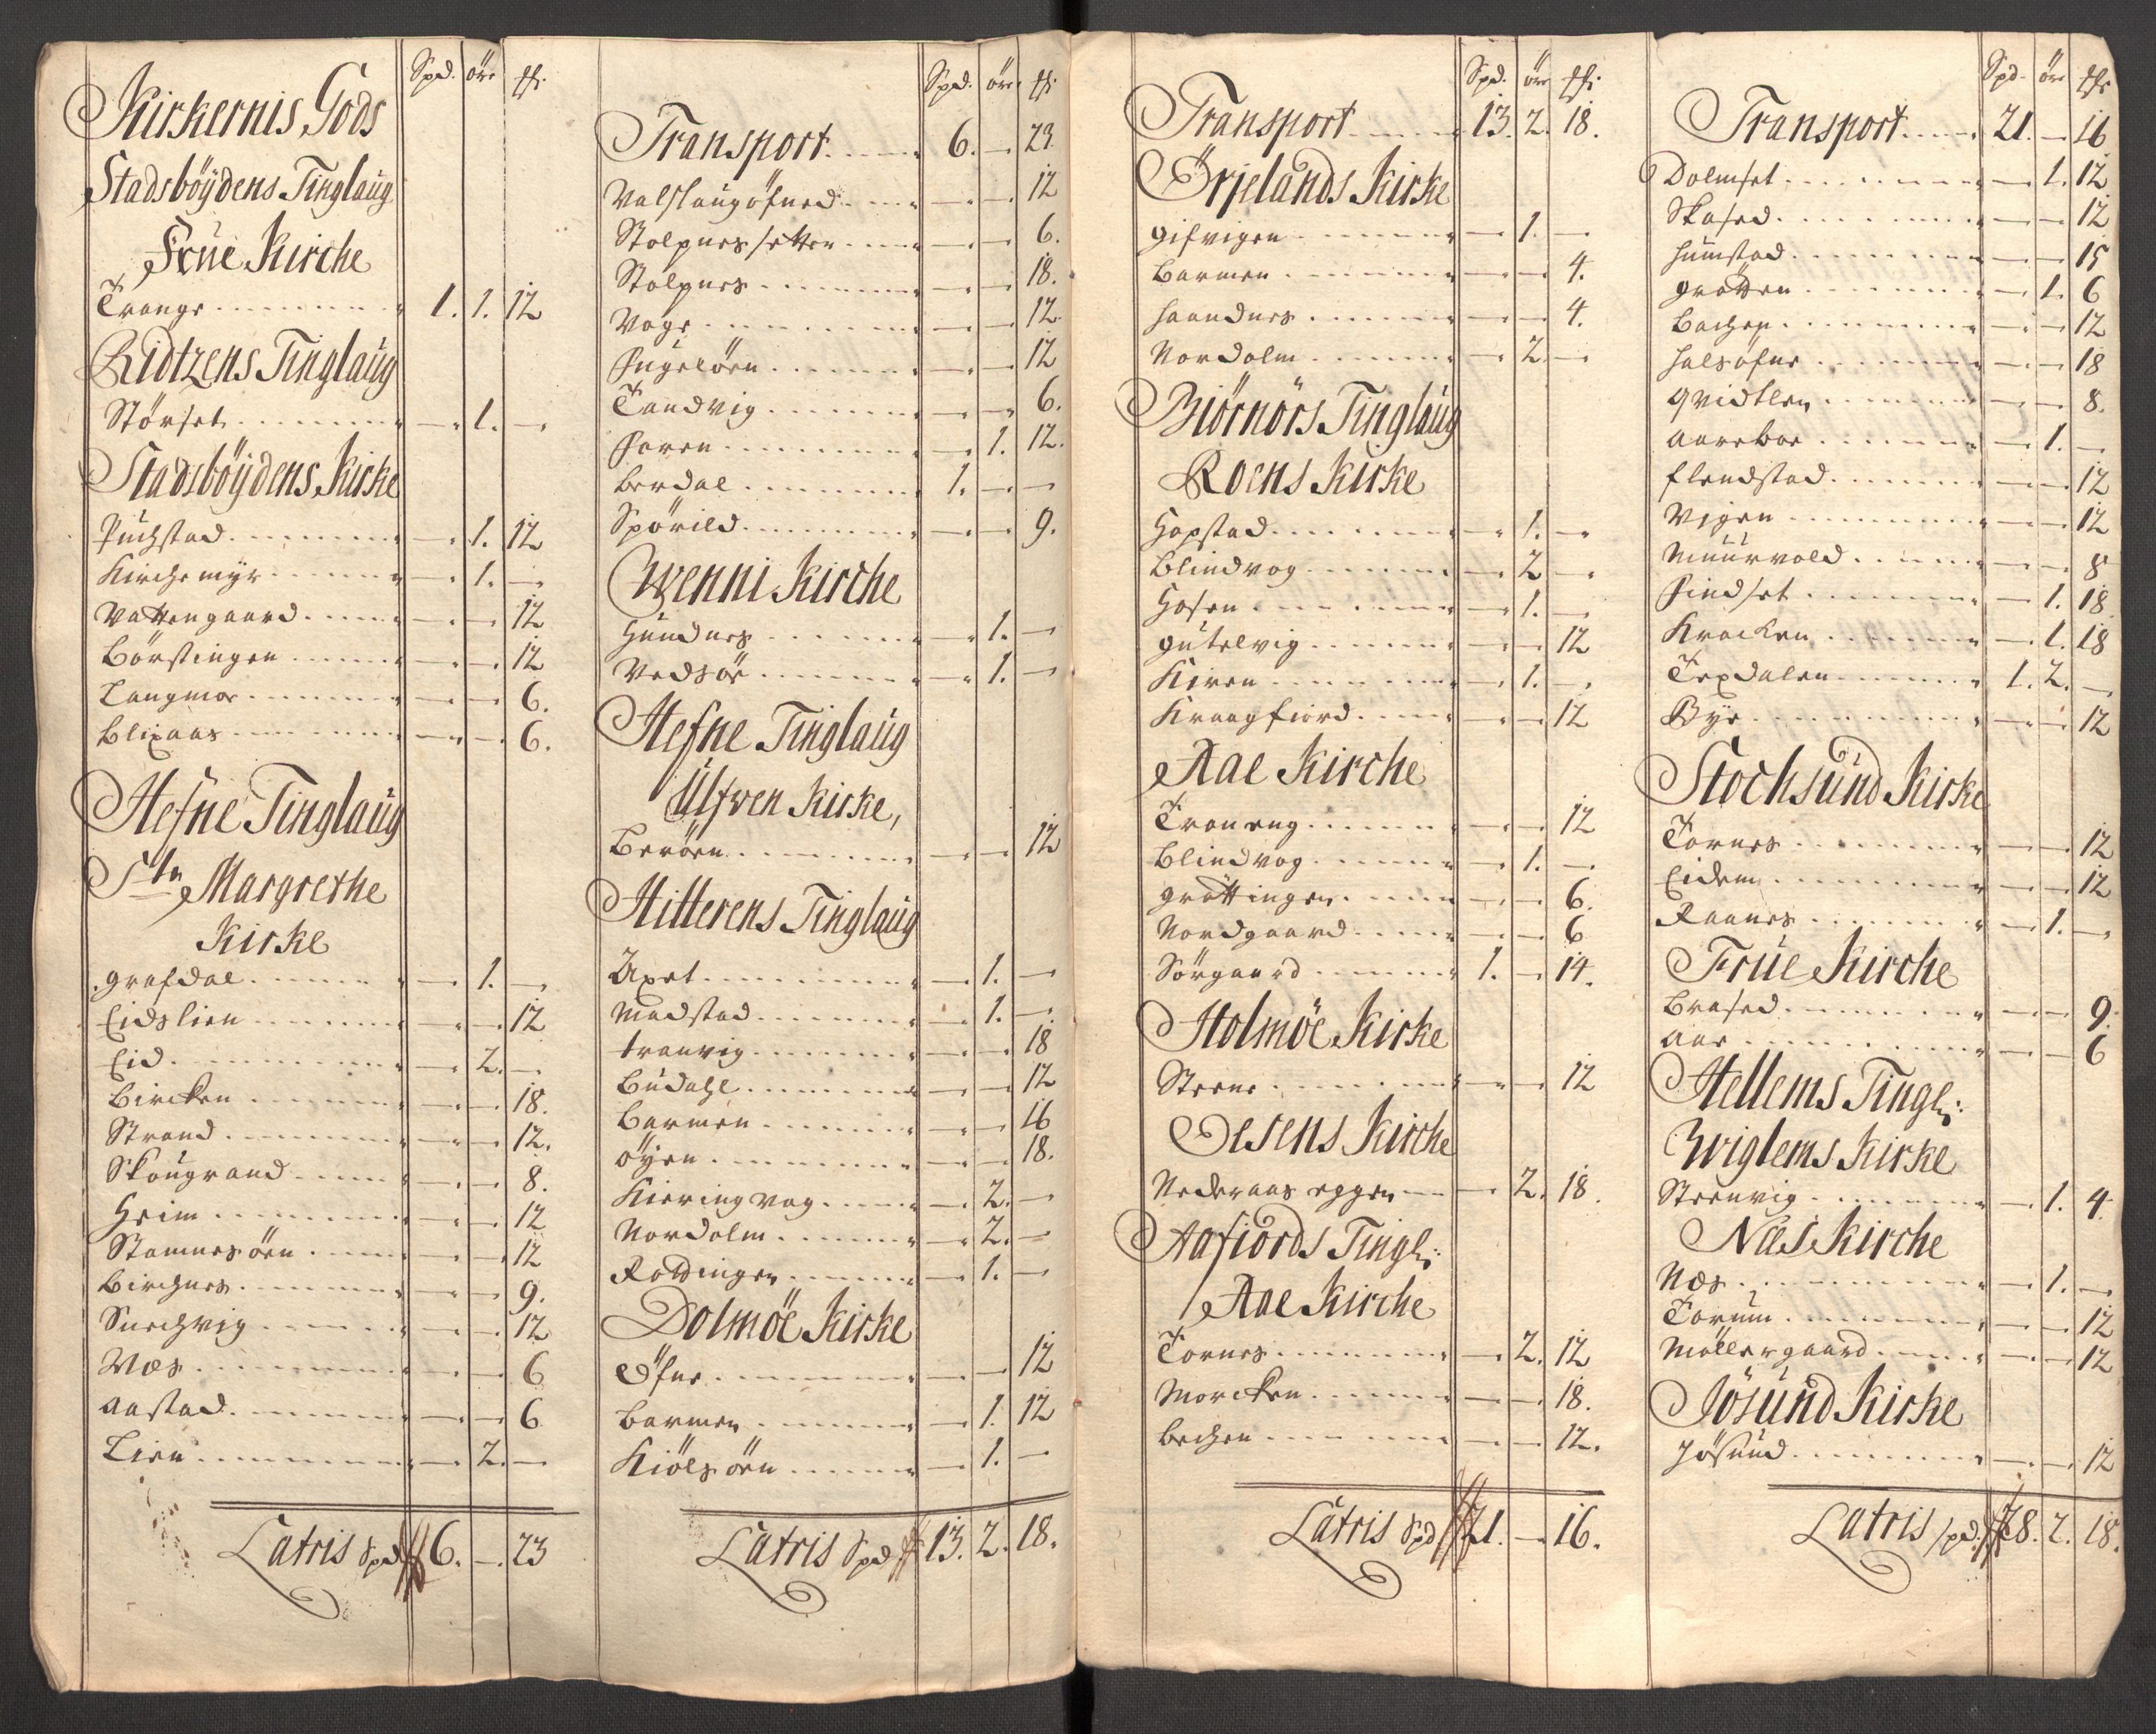 Spd. öre ʜß:
Kirkernis Gods
Stadsböÿdens Tinglaug
Frue Kirche
Trange 1. 1. 12
Ridtzens Tinglaug
Störset — 1. —
Stadsböÿdens Kirke
Kirche myr — 1. —
Vattengaard — — 12
Börstingen — — 12
Langmoe — — 6.
Blixaas — — 6.
Hefne Tinglaug
Stn Margrethe
Kirke
Grafdal — 1. —
Eidslien — — 12
Eid — 2. —
Bircken — — 18.
Strand — — 12.
Skougrand — — 8.
Heim — — 12
Stamnesören — — 12
Birchnes — — 9.
Snechvig — — 12
Næs — — 6
Aastad — — 6
Lien — 2. —
Latris Spd 6. — 23
Spd. öre
Transport 6. — 23.
Valslaugöfned — — 12
Stolpnessetter — — 6.
Stolpnes — — 18.
Vage — — 12
Fugelöen — — 12
Tandvig — — 6.
Faren — 1. 12.
Berdal 1. — —
Spörild — — 9.
Wenni Kirche
Hundnes — 1. —
Vedsöe — 1. —
Hefne Tinglaug
Ulfven Kirke,
Beröen — — 12
Hitterens Tinglaug
Uxet — 1. —
Madstad — 1. —
tranvig — — 18
Budahl — — 12
Barmen — — 16
öÿen — — 18.
Kieringvog — 2. —
Nordolm — 2. —
Roldingen — 1. —
Dolmöe Kirke
Öfne — — 12
Barmen — 1. 12
Kiölsöen — 1. —
Latris Spd 13. 2. 18.
Spd. öre
Transport 13. 2. 18.
Örjelands Kirke
Gifvigen — 1. —
Barmen — — 4.
Haandnes — — 4.
Nordolm — 2. —
Biörnörs Tinglaug
Roens Kirke
Hopstad — 1. —
Blindvog — 2 —
Hosen — 1. —
Gutelvig — — 12
Kiren — 1. —
Kraagfiord — — 12
Aae Kirche
Traneng — — 12
Blindvog — 1. —
Gröttingen — — 6.
Nordgaard — — 6
Sörgaard 1. — 14.
Holmöe Kirke
Steene — — 12
Oesens Kirche
Nederaas eggen — 2. 18.
Aafiords Tingl:
Aae Kirche
Tornes — 2. 12
Morcken — — 18.
Bechen — — 12.
Latris Spd 21. — 16.
Spd. öre
Transport 21. — 16
Dolmset — 1. 12
Skased — — 12
Humstad — — 15
Grötten — 1. 6
Bachen — — 12
Halsöfne — — 18
Qvidtlen — — 8.
Aareboe — 1. —
Flendstad — — 12
Vigen — — 12
Muurvold — — 8
Findset — 1. 18
Kracken — 1. 18
Texdalen 1. 2. —
Bÿe — — 12
Stochsund Kirke
Tornes — — 12
Eidem — — 12
Raanes — 1. —
Frue Kirche
Brased — — 9.
Aae — — 6
Hellems Tingl:
Wiglems Kirke
Steenvig — 1. 4.
Næs Kirche
Næs — 1. —
Torum — — 12
Möllergaard — — 12
Jösund Kirke
Jösund — — 12
Latris spd. 28. 2. 18.